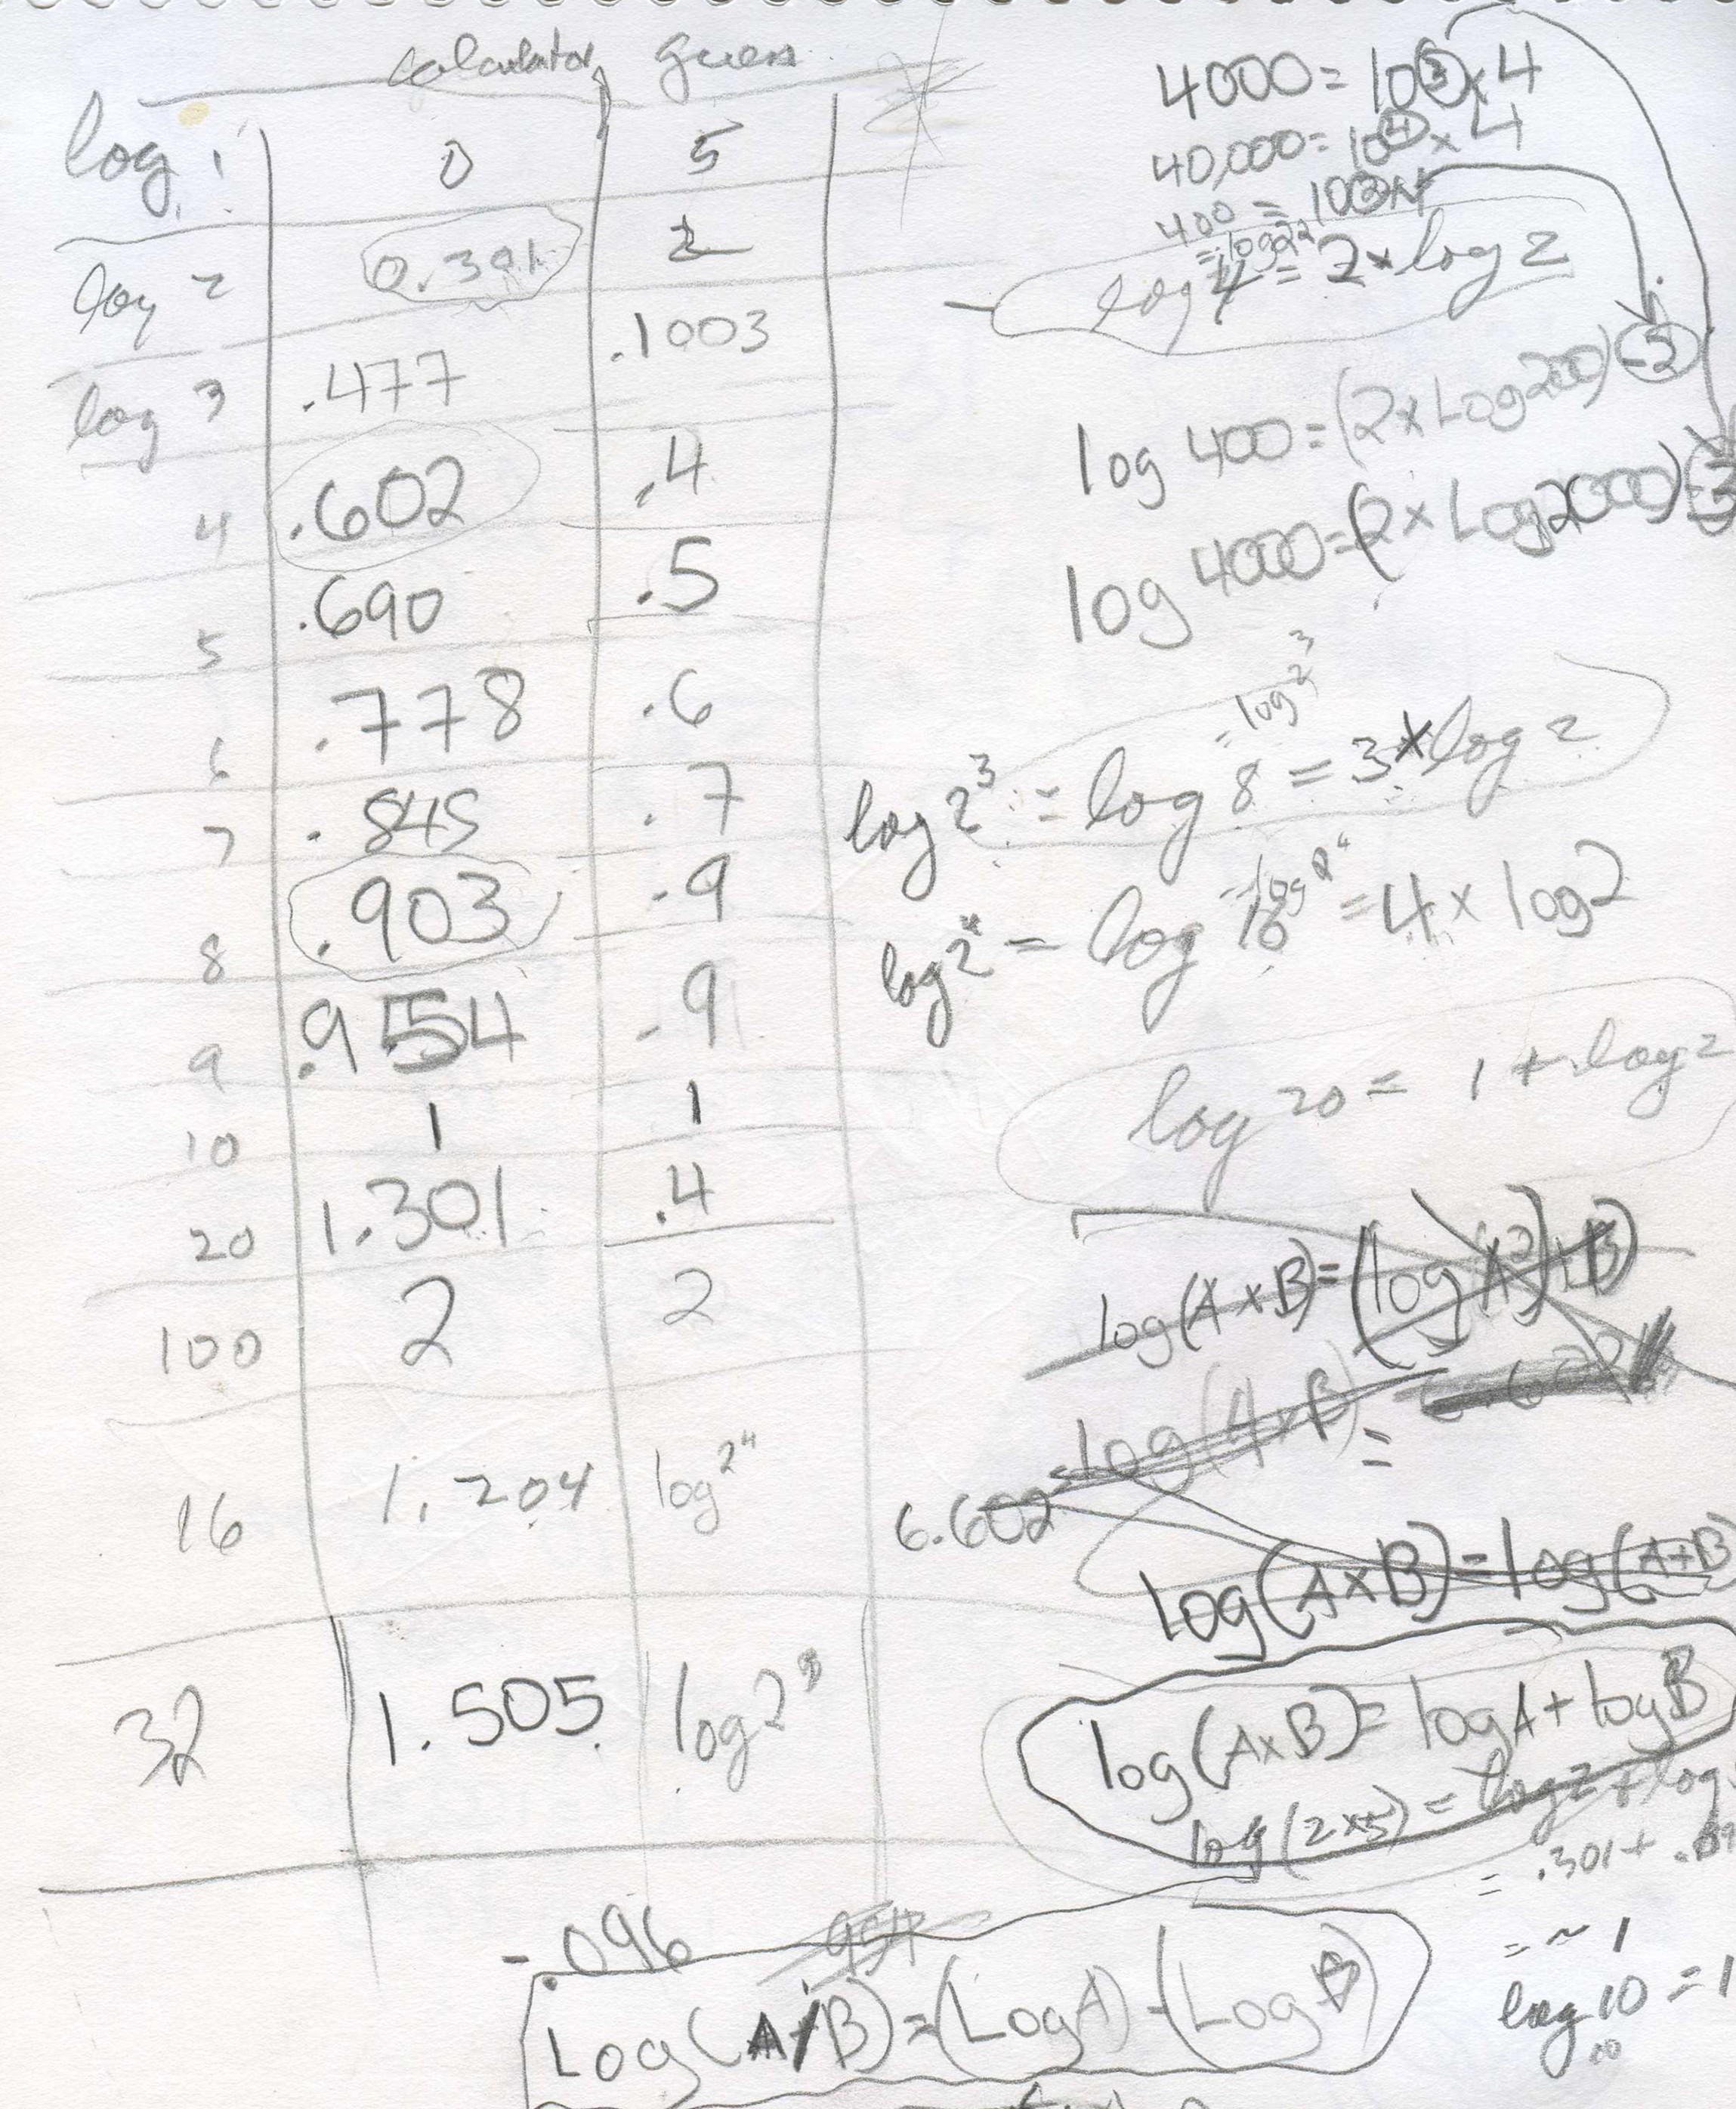 calculator guess
log 1 0 5
log 2 0.301 2
log 3 .477 .1003
4 .602 .4
5 .690 .5
6 .778 .6
7 .845 .7
8 .903 .9
9 .954 .9
10 1 1
20 1.301 .4
100 2 2
16 1.204 log 2⁴
32 1.505 log 2
4000 = 10³ x 4
40,000 = 10⁴ x 4
400 = 10² x 4
= log 2²
log 4 = 2 x log 2
log 400 = (2 x Log 200) -2
log 4000 = (2 x Log 2000) -3
= log 2³
log 2³ = log 8 = 3 x log 2
= log 2⁴
log 2⁴ = log 16 = 4 x log 2
log 20 = 1 + log 2
log(A x B) = (log A²) + B)
log(A x B) =
6.602
log(A x B) = log(A+B)
log(A x B) = log A + log B
log(2 x 5) = log 2 + log
= .301 +
= ~ 1
log 10 = 1
10
-.096 954
Log(A/B) = (Log A) - (Log B)